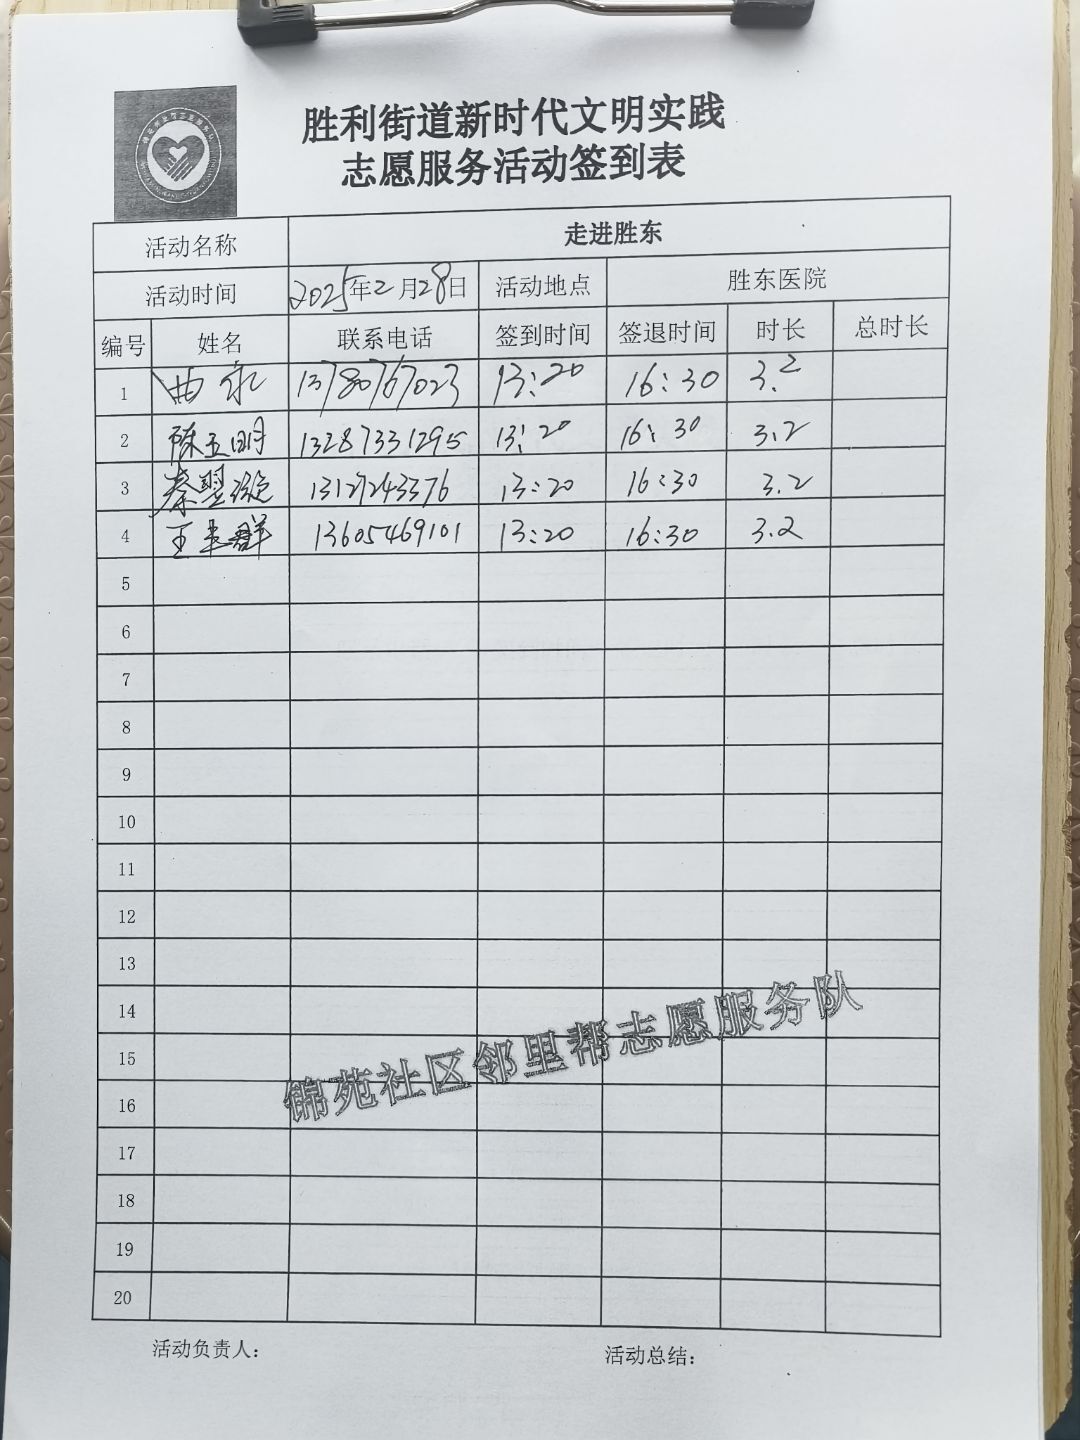 胜利街道新时代文明实践
志愿服务活动签到表
活动名称 走进胜东
活动时间 2025年2月28日 活动地点 胜东医院
编号 姓名 联系电话 签到时间 签退时间 时长 总时长
1 曲永 13780767023 13:20 16:30 3.2
2 陈玉明 13287331295 13:20 16:30 3.2
3 秦翠 13127243376 13:20 16:30 3.2
4 王 群 13605469101 13:20 16:30 3.2
5
6
7
8
9
10
11
12
13
14
15
16
17
18
19
20
锦苑社区邻里帮志愿服务队
活动负责人: 活动总结: